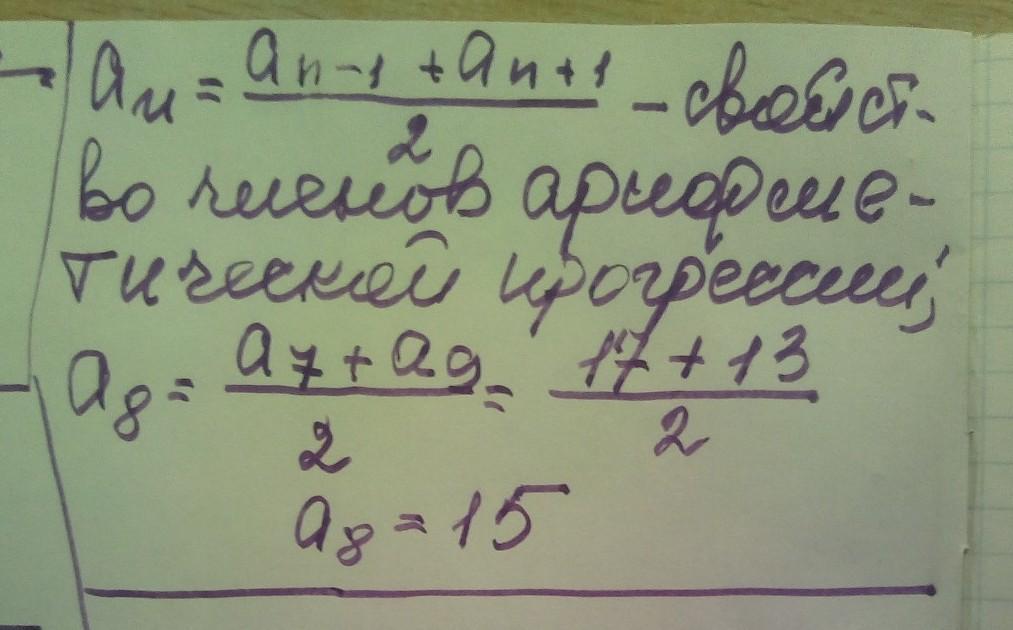 aₙ = (aₙ₋₁ + aₙ₊₁)/2 - свойст-
во членов арифме-
тической прогрессии;
a₈ = (a₇ + a₉)/2 = (17 + 13)/2
a₈ = 15